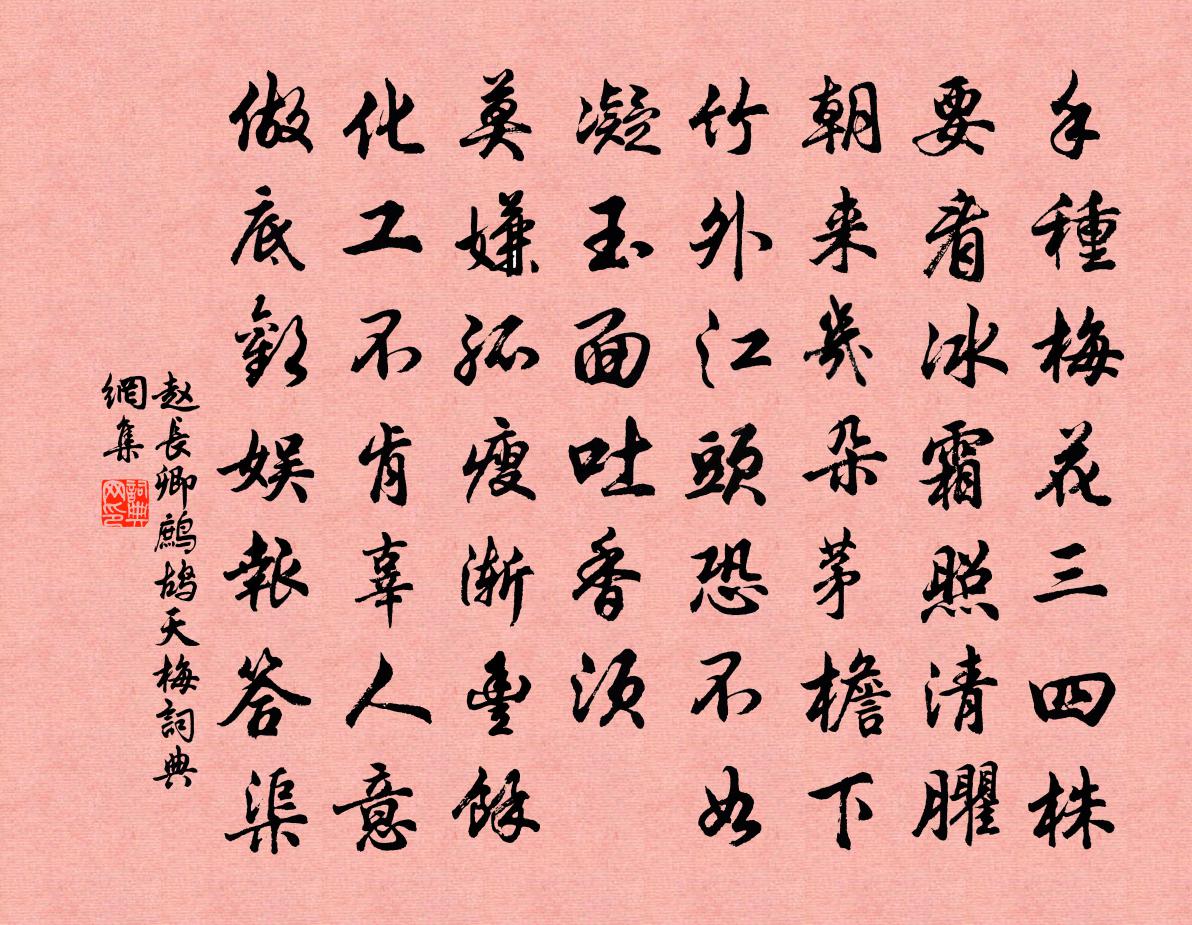 手種梅花三四株
要看冰霜照清臞
朝来幾朵茅檐下
竹外江頭恐不如
凝玉面吐香須
莫嫌孤瘦漸豐餘
化工不肯辜人意
做底歡娛報答渠
赵長卿鷓鴣天梅詞典
網集
詞典
网印